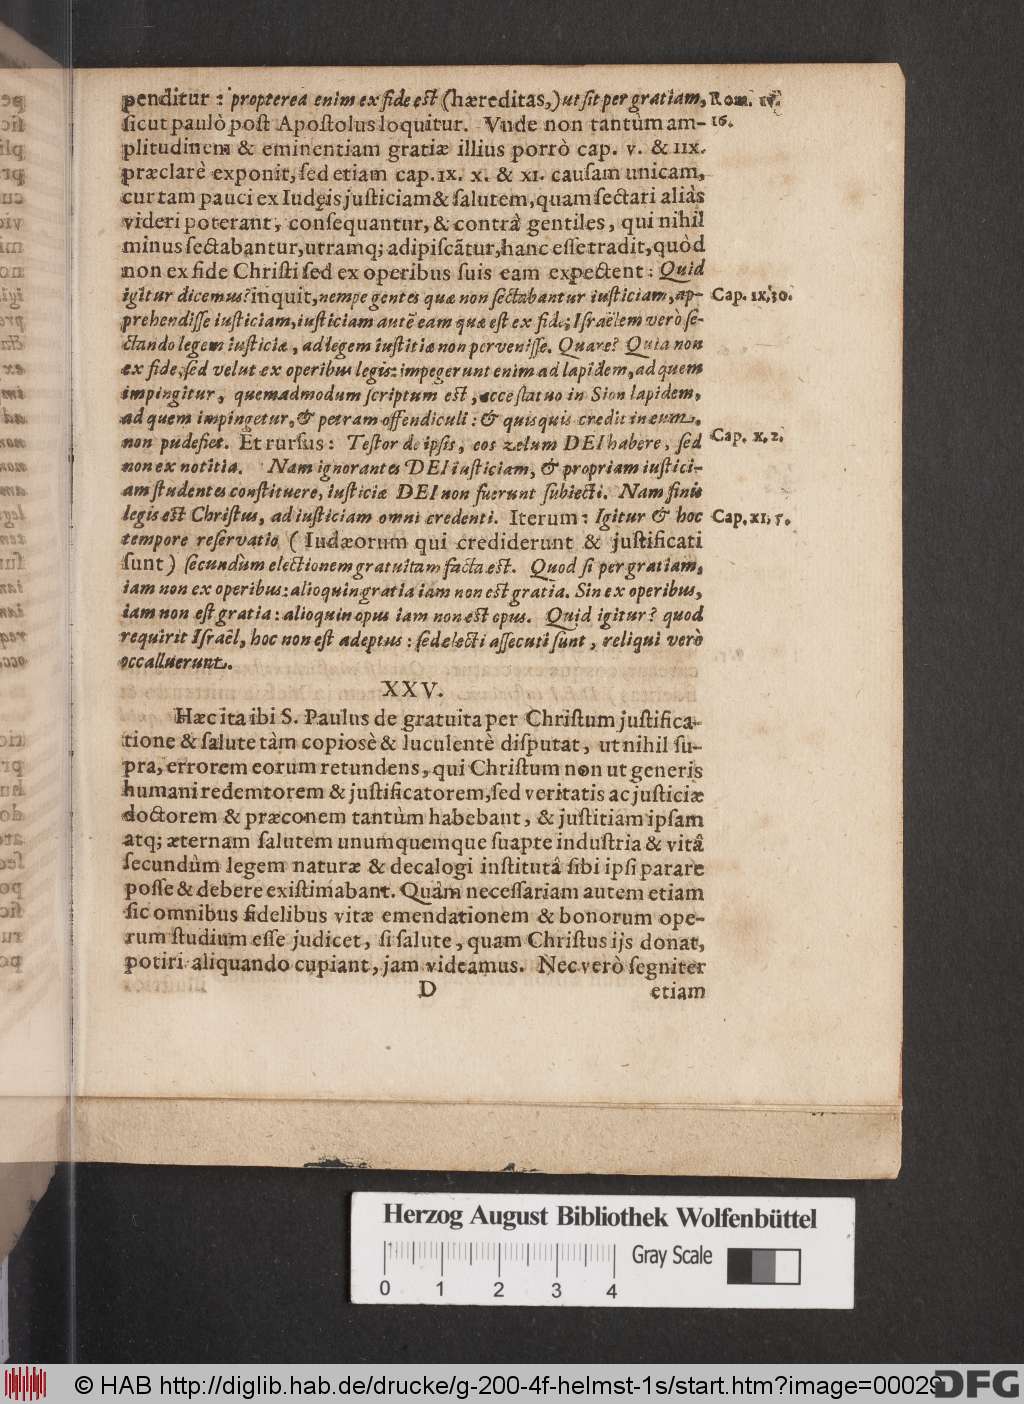 penditur: propterea enim ex fide est (hæreditas,) ut sit per gratiam, Rom. iv.
ſicut paulò poſt Apoſtolus loquitur. Vnde non tantùm am- 16.
plitudinem & eminentiam gratiæ illius porrò cap. v. & iix.
præclarè exponit, ſed etiam cap. ix. x. & xi. cauſam unicam,
cur tam pauci ex Iudęis juſticiam & ſalutem, quam ſectari aliàs
videri poterant, conſequantur, & contrà gentiles, qui nihil
minus ſectabantur, utramq; adipiſcãtur, hanc eſſe tradit, quòd
non ex fide Chriſti ſed ex operibus ſuis eam expectent: Quid
igitur dicemus? inquit, nempe gentes quæ non ſectabantur iuſticiam, ap- Cap. ix. 30.
prehendiſſe iuſticiam, iuſticiam autẽ eam quæ eſt ex fide; Iſraëlem verò ſe-
ctando legem iuſticiæ, ad legem iuſtitiæ non perveniſſe. Quare? Quia non
ex fide, ſed velut ex operibus legis: impegerunt enim ad lapidem, ad quem
impingitur, quemadmodum ſcriptum est, ecce ſtatuo in Sion lapidem,
ad quem impingetur, & petram offendiculi: & quisquis credit in eum,
non pudefiet. Et rurſus: Teſtor de ipſis, eos zelum DEI habere, ſed Cap. x. 2.
non ex notitia. Nam ignorantes DEI iuſticiam, & propriam iuſtici-
am ſtudentes conſtituere, iuſticiæ DEI non fuerunt ſubiecti. Nam finis
legis eſt Chriſtus, ad iuſticiam omni credenti. Iterum: Igitur & hoc Cap. xi. 5.
tempore reſervatio (Iudæorum qui crediderunt & juſtificati
ſunt) ſecundùm electionem gratuitam facta eſt. Quod ſi per gratiam,
iam non ex operibus: alioquin gratia iam non eſt gratia. Sin ex operibus,
iam non eſt gratia: alioquin opus iam non eſt opus. Quid igitur? quod
requirit Iſraël, hoc non eſt adeptus: ſed electi aſſecuti ſunt, reliqui verò
occalluerunt.
XXV.
Hæc ita ibi S. Paulus de gratuita per Chriſtum juſtifica-
tione & ſalute tàm copiosè & luculentè diſputat, ut nihil ſu-
pra, errorem eorum retundens, qui Chriſtum non ut generis
humani redemtorem & juſtificatorem, ſed veritatis ac juſticiæ
doctorem & præconem tantùm habebant, & juſtitiam ipſam
atq; æternam ſalutem unumquemque ſuapte induſtria & vitâ
ſecundùm legem naturæ & decalogi inſtitutâ ſibi ipſi parare
poſſe & debere exiſtimabant. Quàm neceſſariam autem etiam
ſic omnibus fidelibus vitæ emendationem & bonorum ope-
rum ſtudium eſſe judicet, ſi ſalute, quam Chriſtus ijs donat,
potiri aliquando cupiant, jam videamus. Nec verò ſegniter
D etiam
Herzog August Bibliothek Wolfenbüttel
0 1 2 3 4 Gray Scale
© HAB http://diglib.hab.de/drucke/g-200-4f-helmst-1s/start.htm?image=00029
DFG